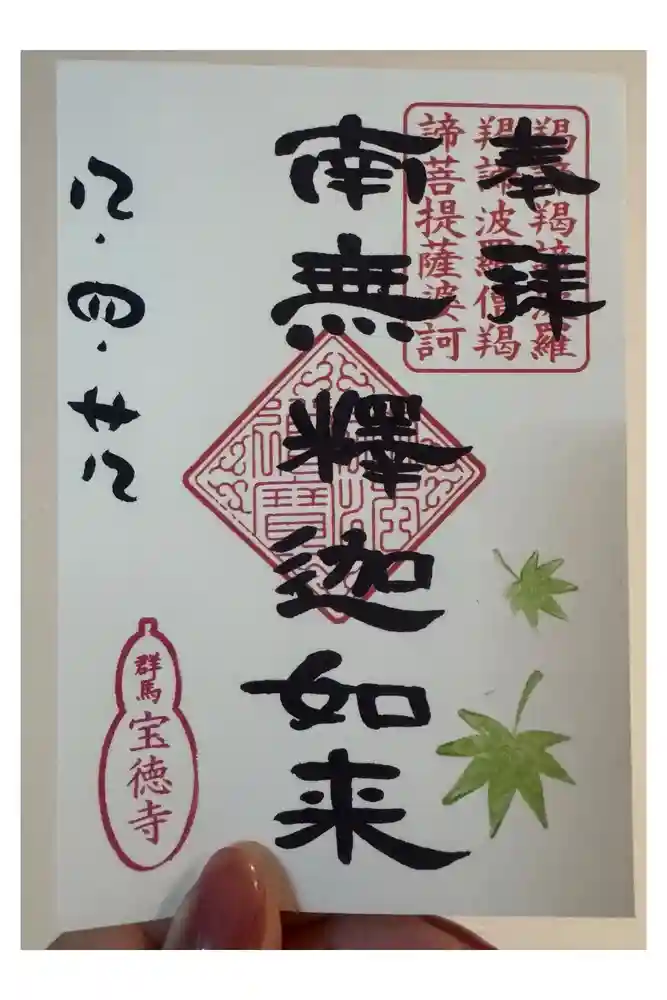 奉拝
羯諦羯諦波羅
羯諦波羅僧羯
諦菩提薩婆訶
南無釋迦如来
四・廿
群馬
宝徳寺